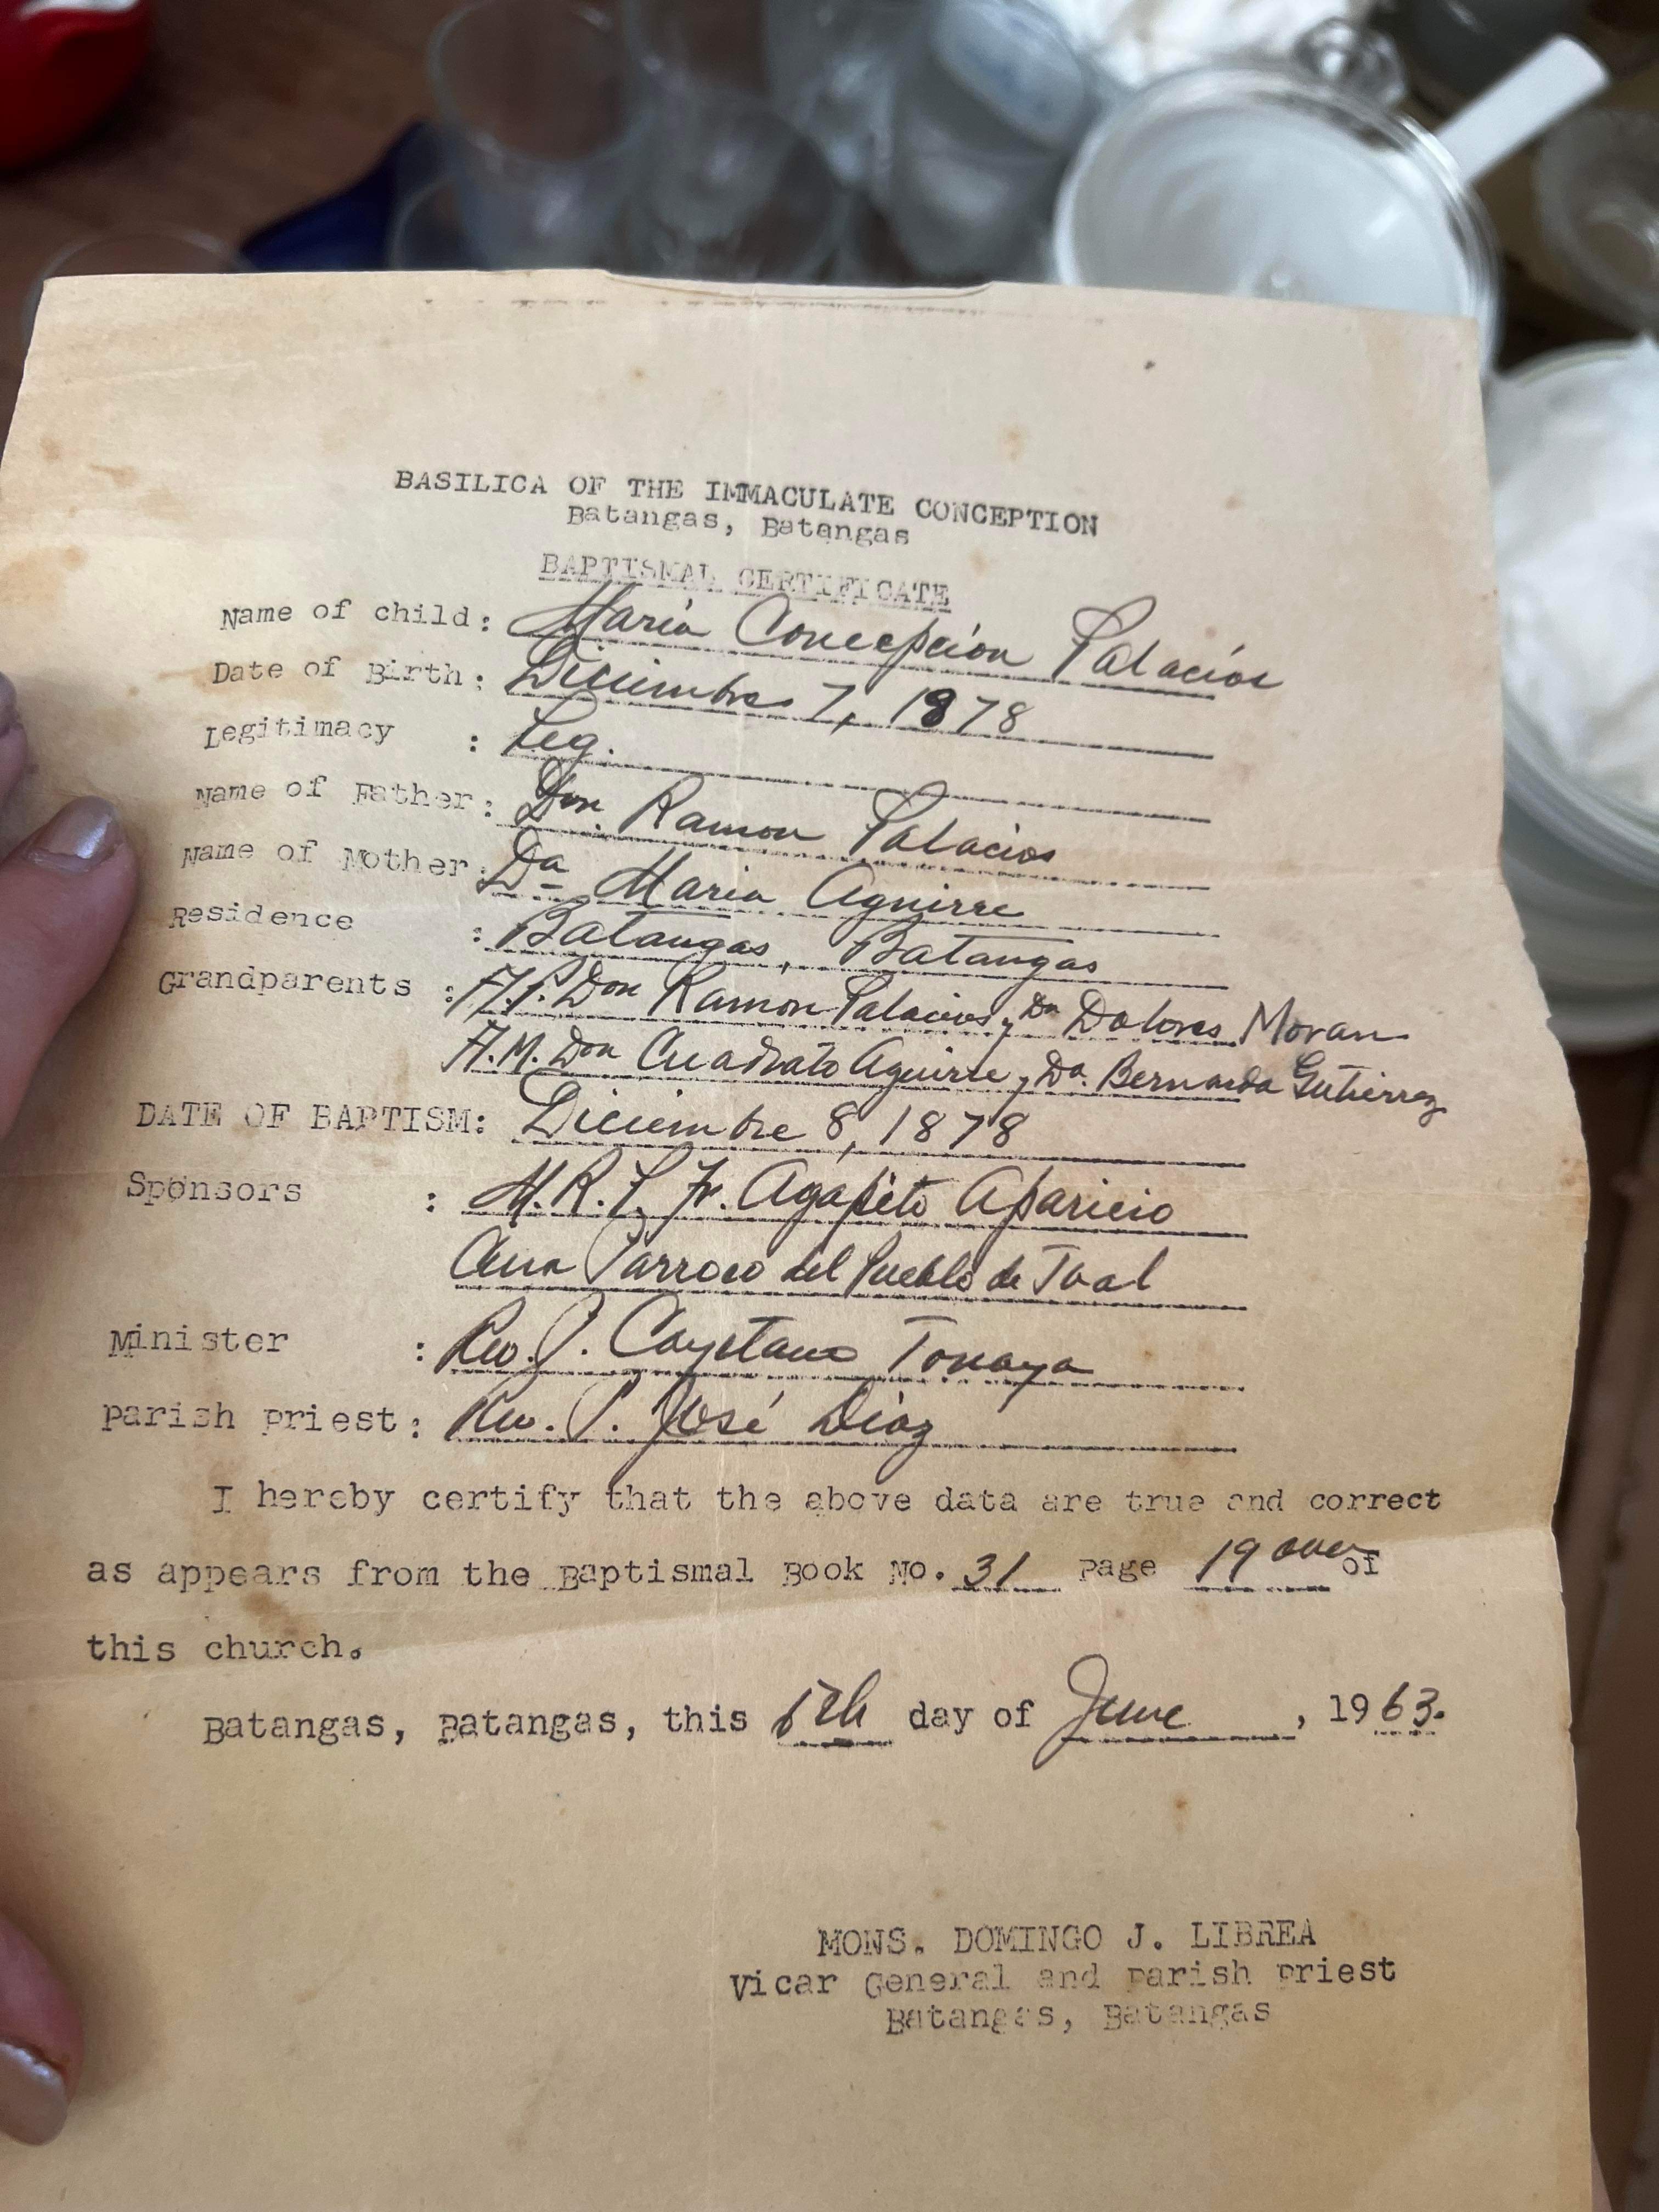 BASILICA OF THE IMMACULATE CONCEPTION
Batangas, Batangas
BAPTISMAL CERTIFICATE
Name of child: María Concepción Palacios
Date of Birth: Diciembre 7, 1878
Legitimacy : Leg.
Name of Father: Don. Ramon Palacios
Name of Mother: Da Maria Aguirre
Residence : Batangas, Batangas
Grandparents : A.P. Don Ramon Palacios y Da Dolores Moran
A.M. Don Cuadrato Aguirre y Da. Bernarda Gutierrez
DATE OF BAPTISM: Diciembre 8, 1878
Sponsors : M.R.P. Fr. Agapito Aparicio
Cura Parroco del Pueblo de Taal
Minister : Rev. P. Cayetano
Parish Priest: Rev. P. José Díaz
I hereby certify that the above data are true and correct
as appears from the Baptismal Book No. 31 Page 19 over of
this church.
Batangas, Batangas, this day of June, 1963.
MONS. DOMINGO J. LIBREA
Vicar General and Parish Priest
Batangas, Batangas